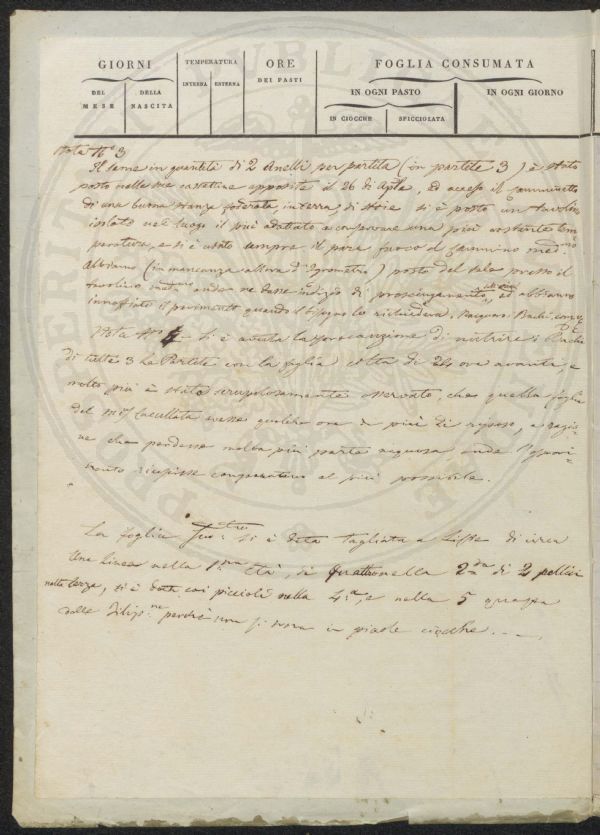 GIORNI
TEMPERATURA
ORE
DEI PASTI
FOGLIA CONSUMATA
DEL MESE
DELLA NASCITA
INTERNA
ESTERNA
IN OGNI PASTO
IN OGNI GIORNO
IN CIOCCHE
SPICCIOLATA
Nota N.º 3
Il seme in quantità di 2 Anelli per partita (in partite 3) è stato
posto nelle tre cassettine apposite il 26 di Aple, ed acceso il Camminetto
di una buona stanza foderata, in terra, di stoie si è posto un tavolino
isolato nel luogo il più adattato a conservare una più costante tem-
peratura, e si è usato sempre il puro fuoco del cammino med.mo
Abbiamo (in mancanza allora d'Igrometro) posto del sale presso il
tavolino onde ne dasse indizio di prosciugamento, ed abbiamo
innaffiato il pavimento quando il bisogno lo richiedeva.
Nota N.º 4 Si è avuta la precauzione di nutrire i Bachi
di tutte 3 le Partite con la foglia colta di 24 ore avanti, e
molto più è stato scrupolosamente osservato, che quella foglia
del avesse qualche ora di più di riposo, a cagio-
ne che perdesse molta più parte acquosa onde
riuscisse al più possibile.
La foglia si è data tagliata a Lisse di circa
una Linea nella 1.ma Età, di quattro nella 2.da di 2 pollici
nella terza, si è data coi piccioli nella 4.a, e nella 5
dalle perchè non si trova in ciocche